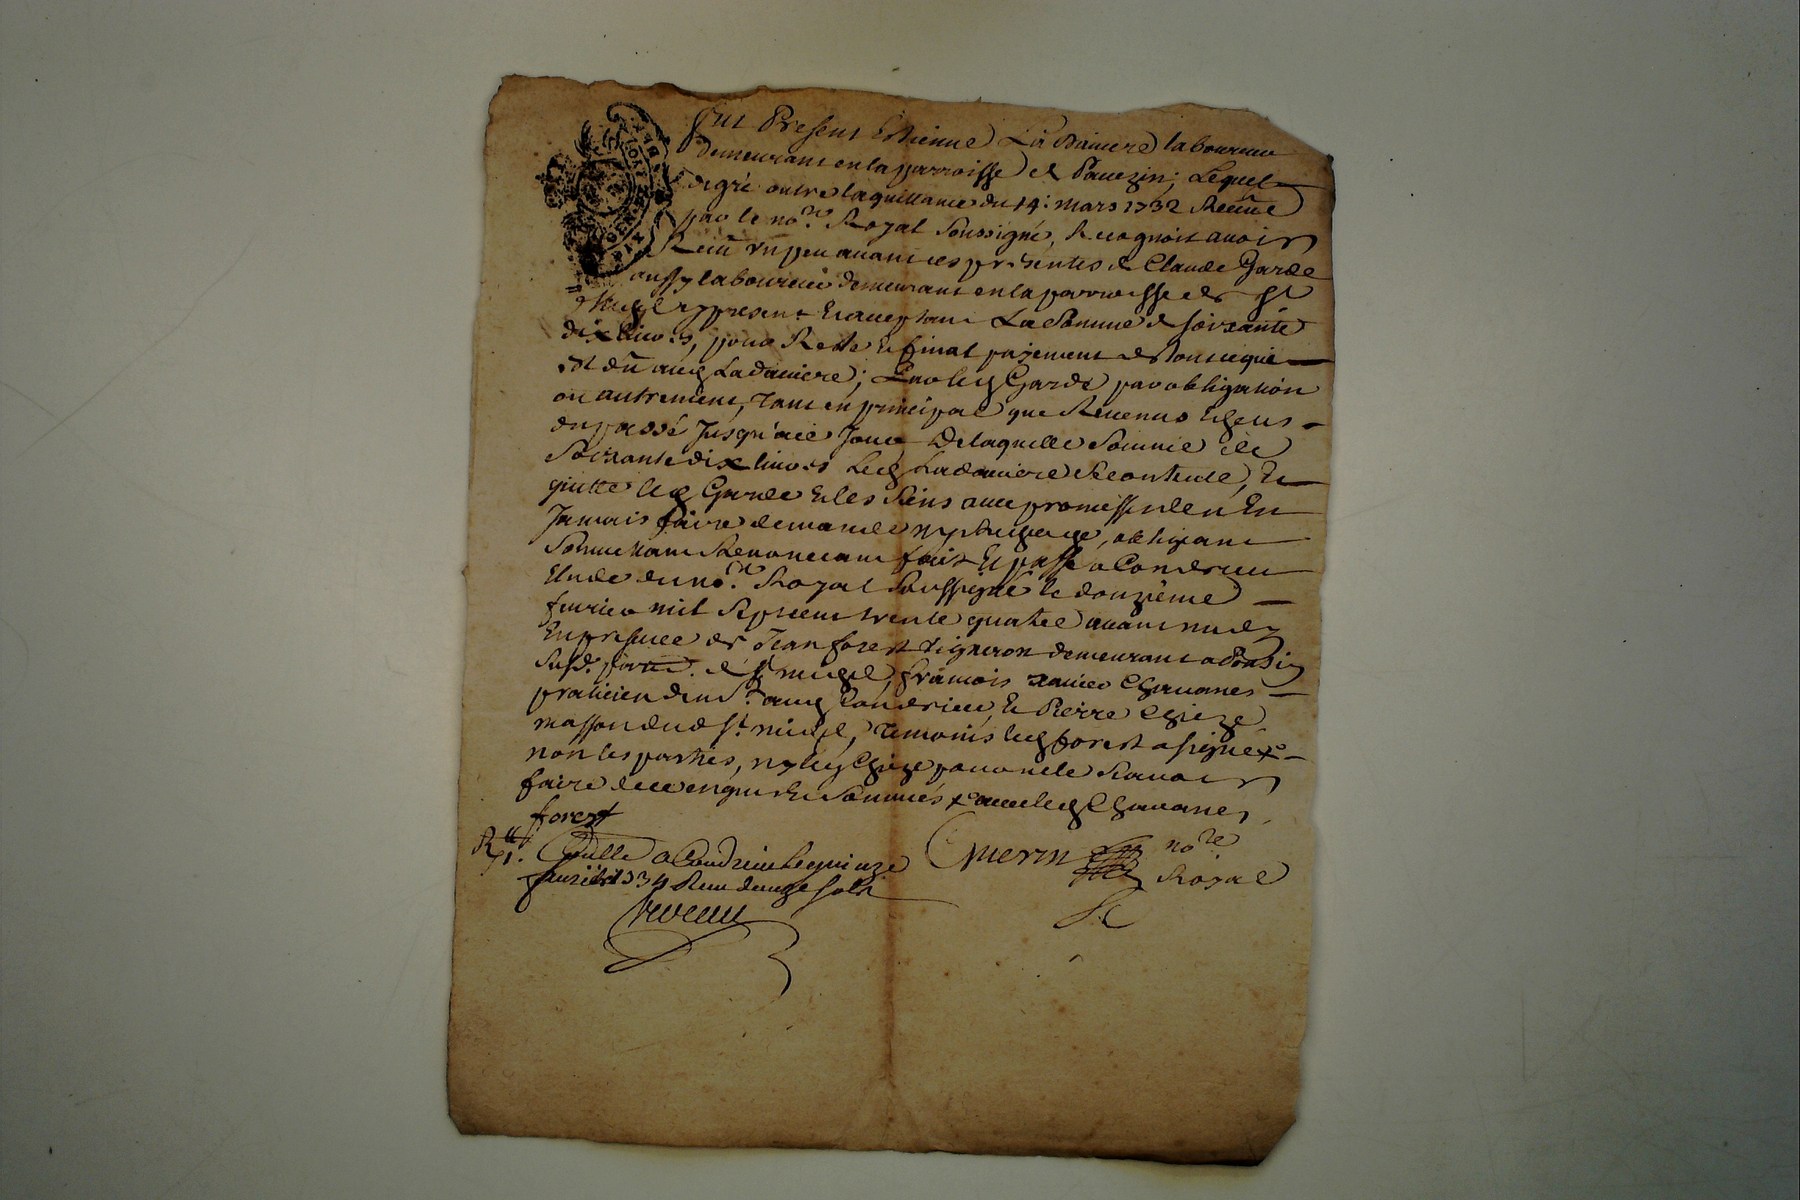 Fut Present Estienne Ladaniere laboureur
demeurant en la parroisse de Pavezin; Lequel
degré outre la quittance du 14: mars 1732 Receüe
par le no.re Royal Soussigné, Recognoit avoir
Receu un peu avant ces presentes de Claude Garde
aussy laboureur demeurant en la parroisse de St
Michel present & acceptant La Somme de soixante
dix livres, pour Reste & final payement de tout ce qui
est dû aud Ladaniere; Par led Garde par obligation
ou autrement, tant en principal que Revenus
du passé Jusqu'a ce Jour De laquelle Somme de
Soixante dix livres Led Ladaniere Se contente, Et
quitte led Garde & les Siens avec promesse de n'en
Jamais faire demande obligeant
Soumettant Renonceant fait & passé a Condrieu
Etude du no.re Royal Soussigné le douzieme
fevrier mil Sept cent trente quatre avant midy
En presence de Jean forest vigneron demeurant a
de St michel, françois Chavanes
praticien dud Condrieu, & Pierre Chieze
masson dud St michel, temoins led forest a signé x
non les parties, ny led Chieze pour ne le Scavoir
faire de ce enquis & Sommés x avec led Chavanes
forest
Guerin no.re
Royal
a Condrieu le quinze
fevrier 1734 Receu douze sols